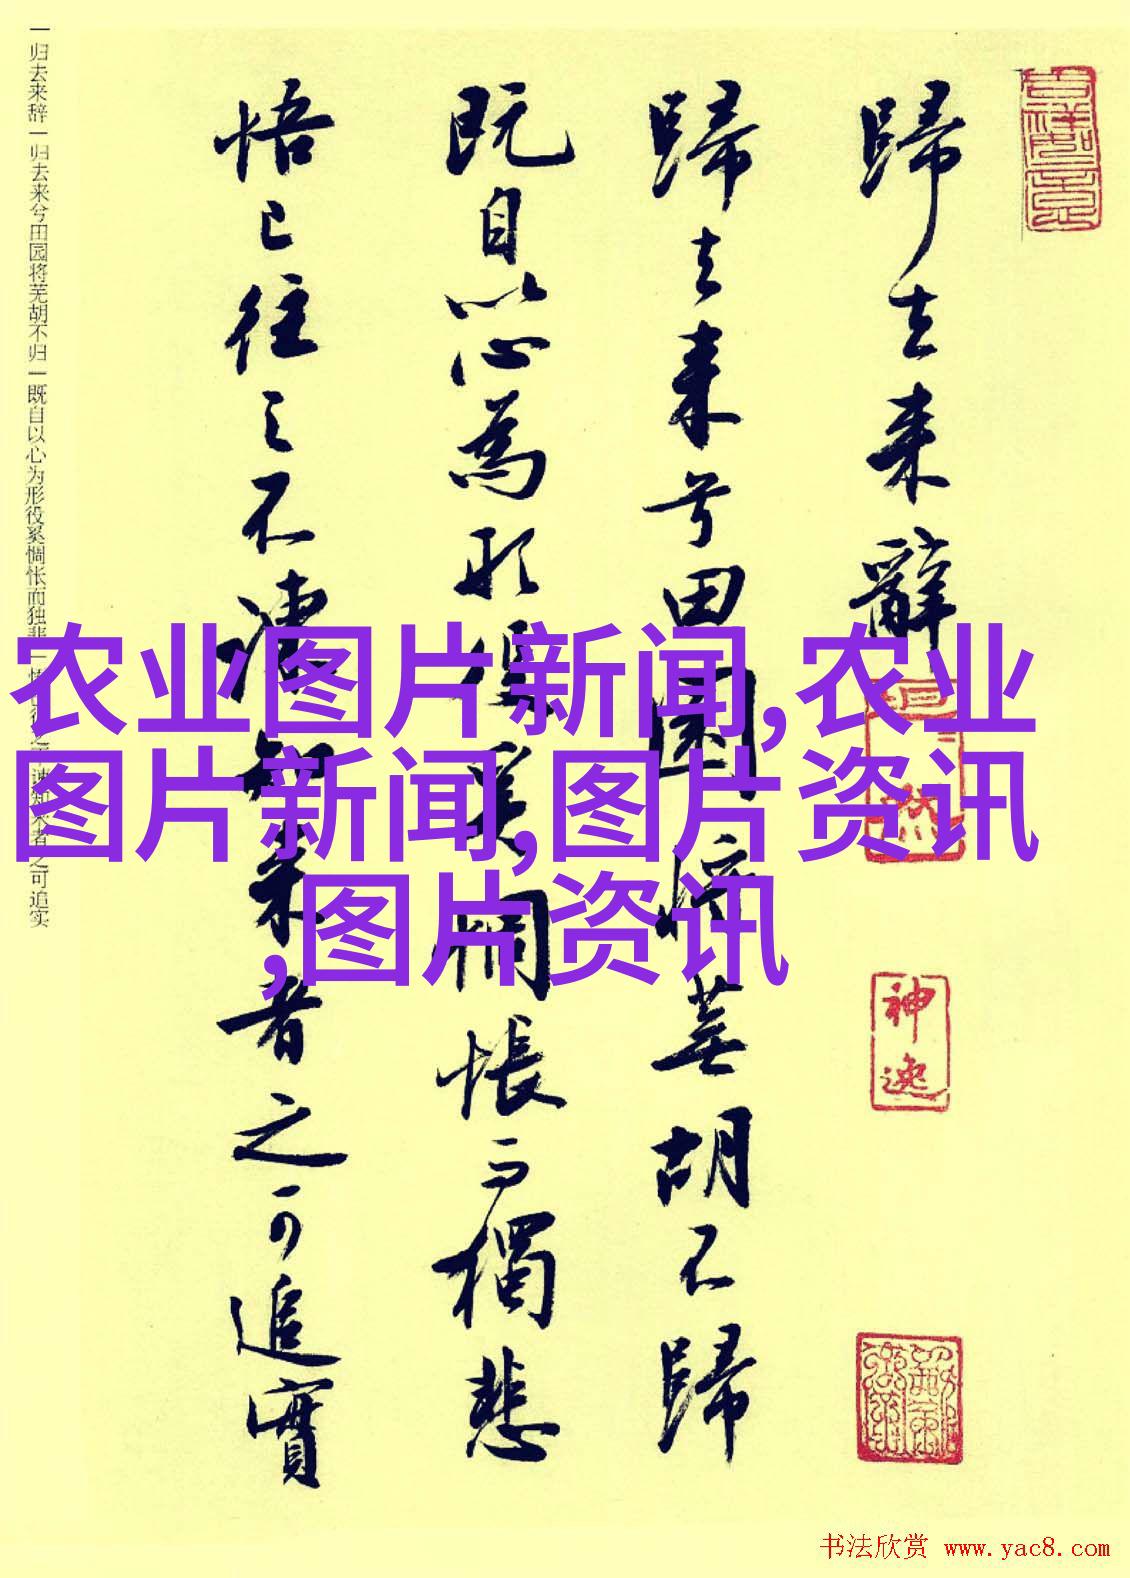 歸去来辭
歸去来兮田園将蕪胡不歸
既自以心為形役奚惆悵而獨悲
悟已往之不諫知来者之可追實
一归去来辞一归去来兮田园将芜胡不归一既自以心为形役奚惆怅而独悲一悟已往之不谏知来者之可追实
农业图片新闻,农业
图片新闻,图片资讯
,图片资讯
神逸
书法欣赏 www.yac8.com